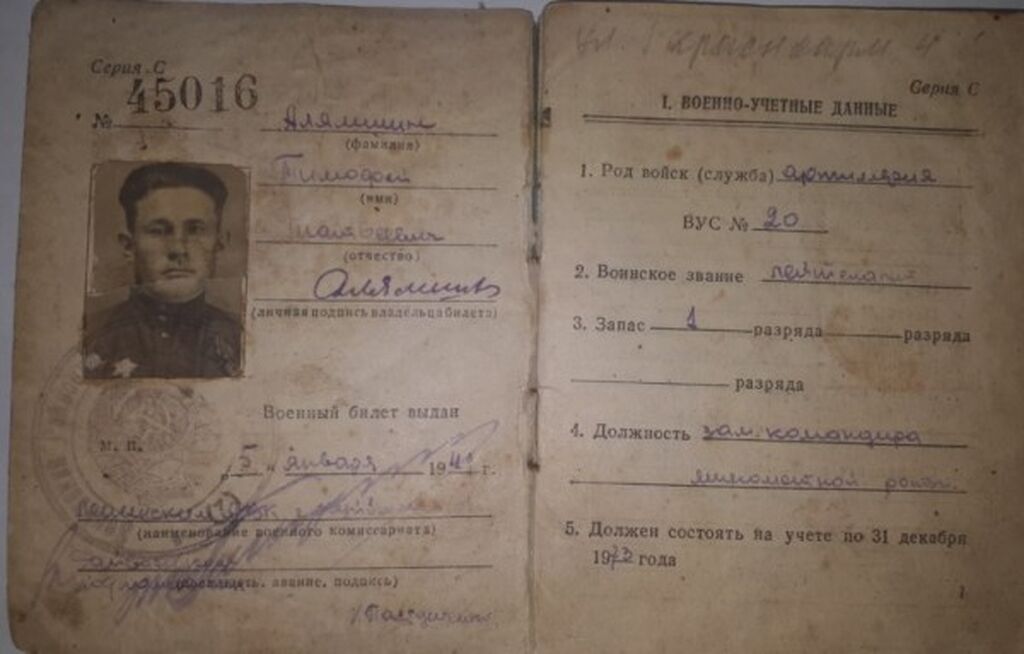 Серия С
45016
№
Алямшин
(фамилия)
Тимофей
(имя)
Матвеевич
(отчество)
(личная подпись владельца билета)
Военный билет выдан
М. П.
„5“ января 194 г.
(наименование военного комиссариата)
звание, подпись)
Серия С
I. ВОЕННО-УЧЕТНЫЕ ДАННЫЕ
1. Род войск (служба) артиллерия
ВУС № 20
2. Воинское звание лейтенант
3. Запас 1 разряда разряда
разряда
4. Должность зам. командира
минометной роты.
5. Должен состоять на учете по 31 декабря
1973 года
1